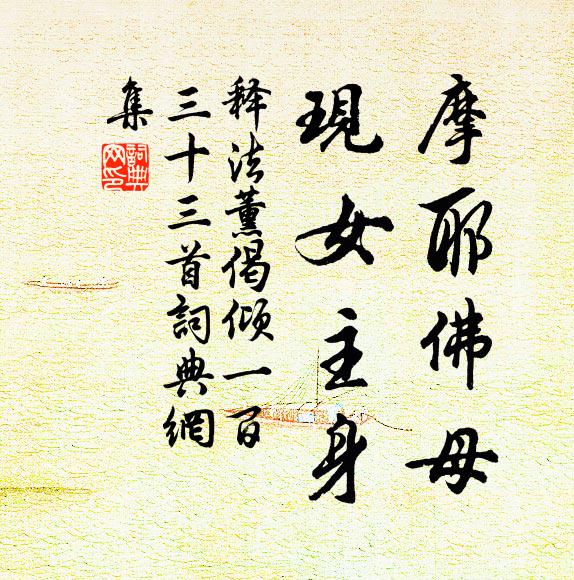 摩耶佛母
現女主身
释法薰偈倾一百
三十三首詞典網
集
詞典
网印